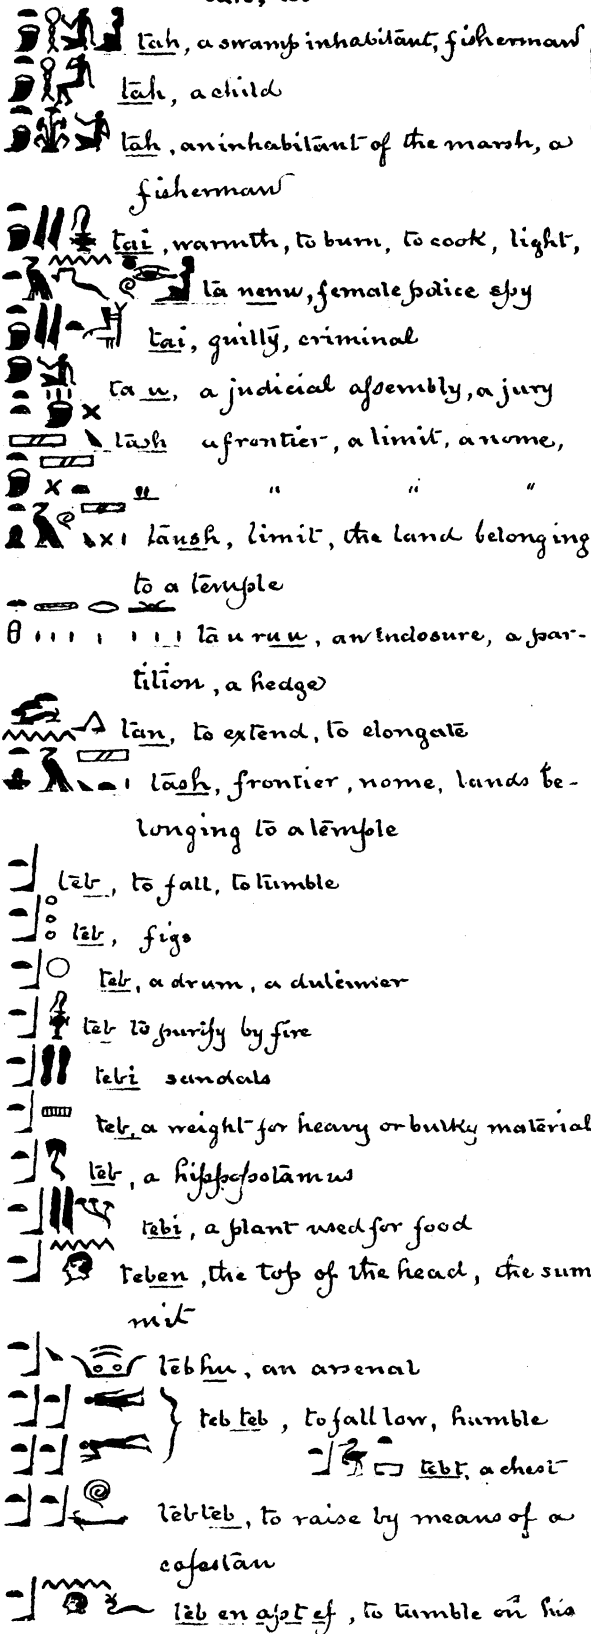 tah, a swamp inhabitant, fisherman
tah, a child
tah, an inhabitant of the marsh, a
fisherman
tai, warmth, to burn, to cook, light,
ta nenu, female police spy
tai, guilty, criminal
ta u, a judicial assembly, a jury
tash a frontier, a limit, a nome,
" " " "
taush, limit, the land belonging
to a temple
ta u ruu, an enclosure, a par-
tition, a hedge
tan, to extend, to elongate
tash, frontier, nome, lands be-
longing to a temple
teb, to fall, to tumble
teb, figs
teb, a drum, a dulcimer
teb to purify by fire
tebi sandals
teb, a weight for heavy or bulky material
teb, a hippopotamus
tebi, a plant used for food
teben, the top of the head, the sum
mit
tebhu, an arsenal
teb teb, to fall low, humble
tebt, a chest
tebteb, to raise by means of a
capstan
teb en apt ef, to tumble on his